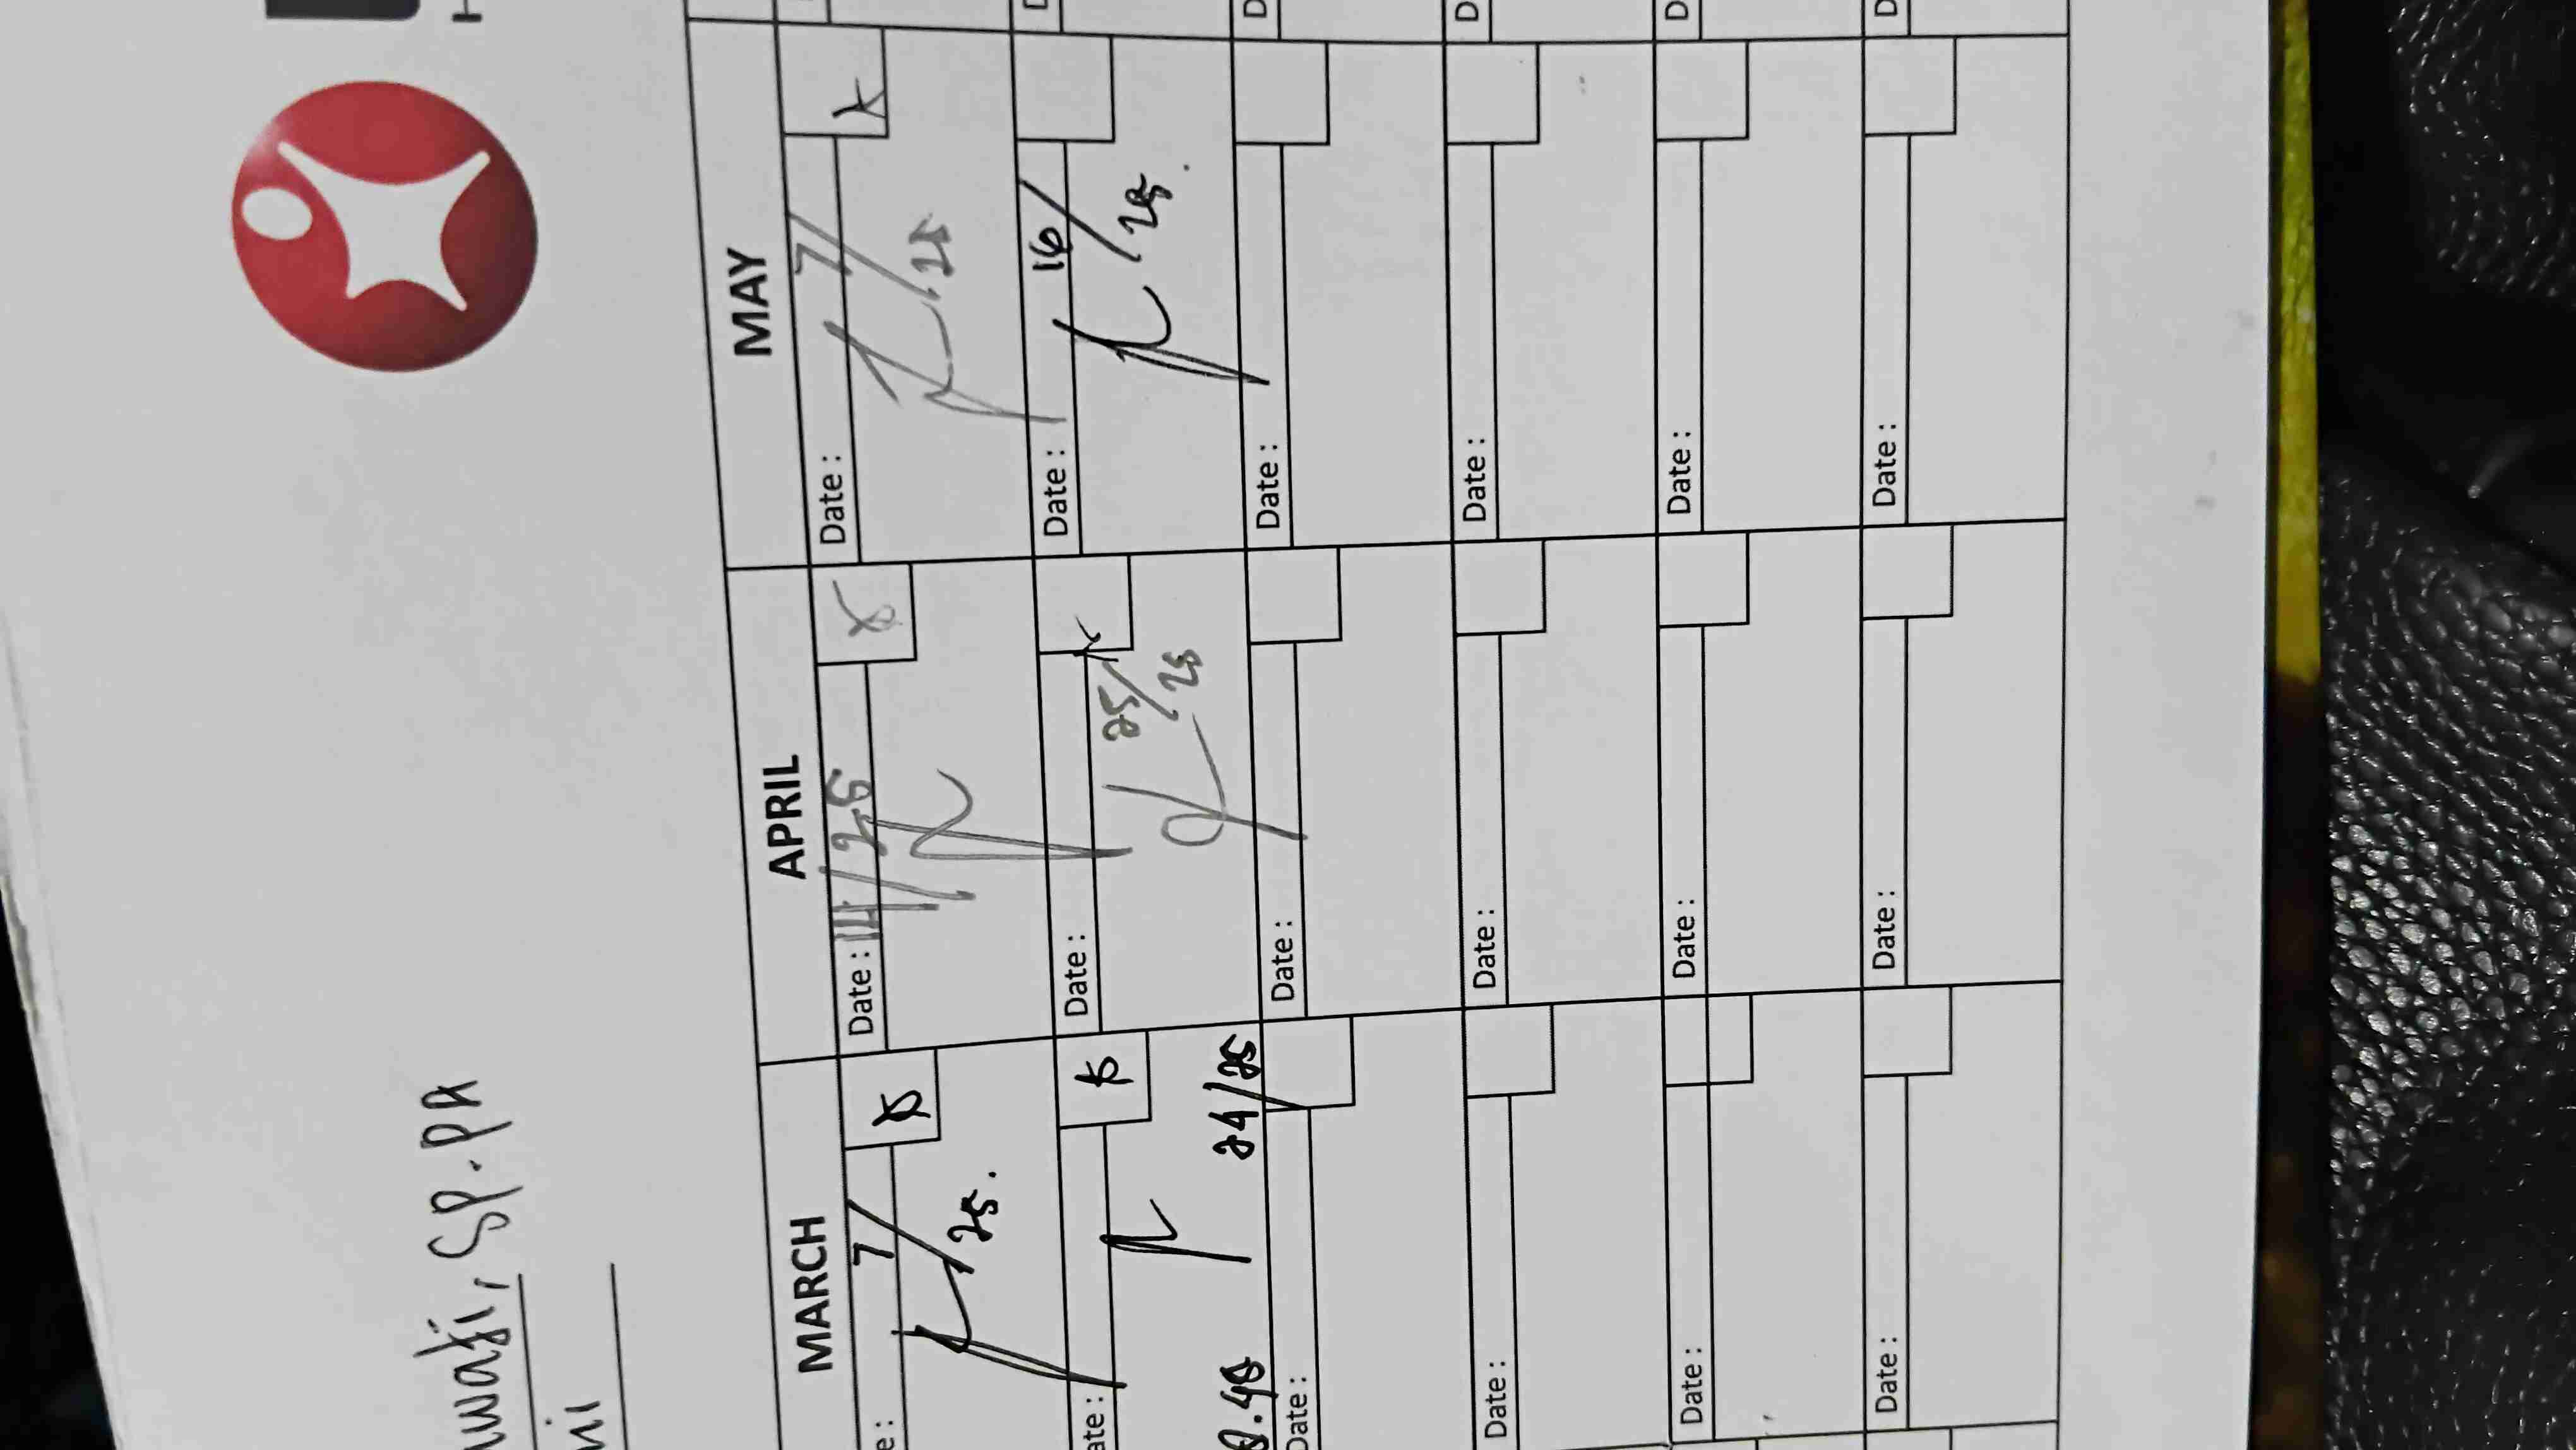 uwati, Sp.PA
ni
MARCH APRIL MAY
e : 7/25. Date : 11/25 Date : 7/25
ate : Date : 25/25 Date : 16/25.
8.45 24/25
Date : Date : Date : D
Date : Date : Date : D
Date : Date : Date : D
Date : Date : Date : D